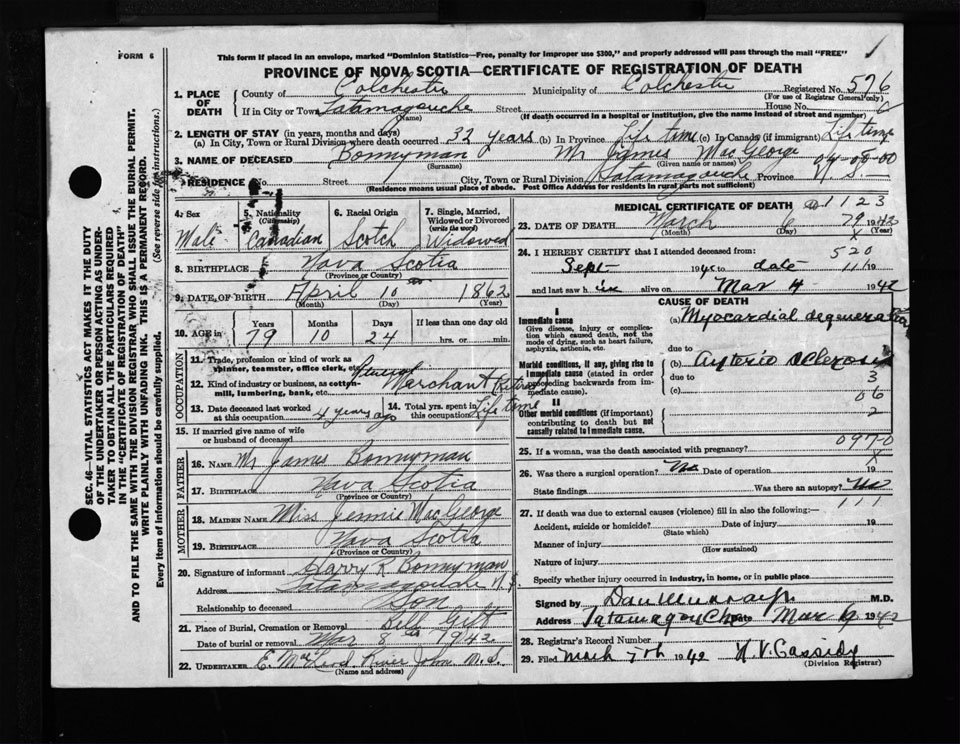 FORM 6
This form if placed in an envelope, marked "Dominion Statistics—Free, penalty for improper use $300," and properly addressed will pass through the mail "FREE"
PROVINCE OF NOVA SCOTIA—CERTIFICATE OF REGISTRATION OF DEATH
1. PLACE OF DEATH
County of Colchester Municipality of Colchester Registered No. 576
(For use of Registrar General only)
If in City or Town Tatamagouche Street House No.
(Name) (If death occurred in a hospital or institution, give the name instead of street and number)
2. LENGTH OF STAY (in years, months and days)
(a) In City, Town or Rural Division where death occurred 32 years (b) In Province Life time (c) In Canada (if immigrant) Life time
3. NAME OF DECEASED Bonnyman Mr James MacGeorge
(Surname) (Given name or names)
04-08-00
RESIDENCE No. Street City, Town or Rural Division Tatamagouche Province N. S.
(Residence means usual place of abode. Post Office Address for residents in rural parts not sufficient)
4. Sex Male
5. Nationality (Citizenship) Canadian
6. Racial Origin Scotch
7. Single, Married, Widowed or Divorced (write the word) Widowed
8. BIRTHPLACE Nova Scotia
(Province or Country)
9. DATE OF BIRTH April 10 1862
(Month) (Day) (Year)
10. AGE in Years 79 Months 10 Days 24 If less than one day old hrs. or min.
OCCUPATION
11. Trade, profession or kind of work as spinner, teamster, office clerk, etc. General
12. Kind of industry or business, as cotton-mill, lumbering, bank, etc. Merchant Retired
13. Date deceased last worked at this occupation 4 years ago
14. Total yrs. spent in this occupation Life time
15. If married give name of wife or husband of deceased
FATHER
16. NAME Mr James Bonnyman
17. BIRTHPLACE Nova Scotia
(Province or Country)
MOTHER
18. MAIDEN NAME Miss Jennie MacGeorge
19. BIRTHPLACE Nova Scotia
(Province or Country)
20. Signature of informant Harry R Bonnyman
Address Tatamagouche N. S.
Relationship to deceased Son
21. Place of Burial, Cremation or Removal
Date of burial or removal Mar 8 1942
22. UNDERTAKER E. McLeod River John N. S.
(Name and address)
MEDICAL CERTIFICATE OF DEATH
1123
23. DATE OF DEATH March 1942
(Month) (Day) (Year)
79
24. I HEREBY CERTIFY that I attended deceased from:
520
Sept 19 to date 19
and last saw h alive on Mar 4 1942
CAUSE OF DEATH
I
Immediate cause
Give disease, injury or complication which caused death, not the mode of dying, such as heart failure, asphyxia, asthenia, etc.
(a) Myocardial degeneration
due to
Morbid conditions, if any, giving rise to immediate cause (stated in order proceeding backwards from immediate cause).
(b) Arterio sclerosis
due to 3
(c) 06
II
Other morbid conditions (if important) contributing to death but not causally related to immediate cause.
2
0970
25. If a woman, was the death associated with pregnancy?
26. Was there a surgical operation? No Date of operation 19
State findings Was there an autopsy? No
27. If death was due to external causes (violence) fill in also the following:—
Accident, suicide or homicide? Date of injury 19
(State which)
Manner of injury
(How sustained)
Nature of injury
Specify whether injury occurred in industry, in home, or in public place
Signed by Dan Murray Jr. M.D.
Address Tatamagouche Date Mar 1942
28. Registrar's Record Number
29. Filed March 7th 1942 H. V. Cassidy
(Division Registrar)
SEC. 46—VITAL STATISTICS ACT MAKES IT THE DUTY
OF THE UNDERTAKER OR PERSON ACTING AS UNDER-
TAKER TO OBTAIN ALL THE PARTICULARS REQUIRED
IN THE "CERTIFICATE OF REGISTRATION OF DEATH"
AND TO FILE THE SAME WITH THE DIVISION REGISTRAR WHO SHALL ISSUE THE BURIAL PERMIT.
WRITE PLAINLY WITH UNFADING INK. THIS IS A PERMANENT RECORD.
Every item of information should be carefully supplied. (See reverse side for instructions.)